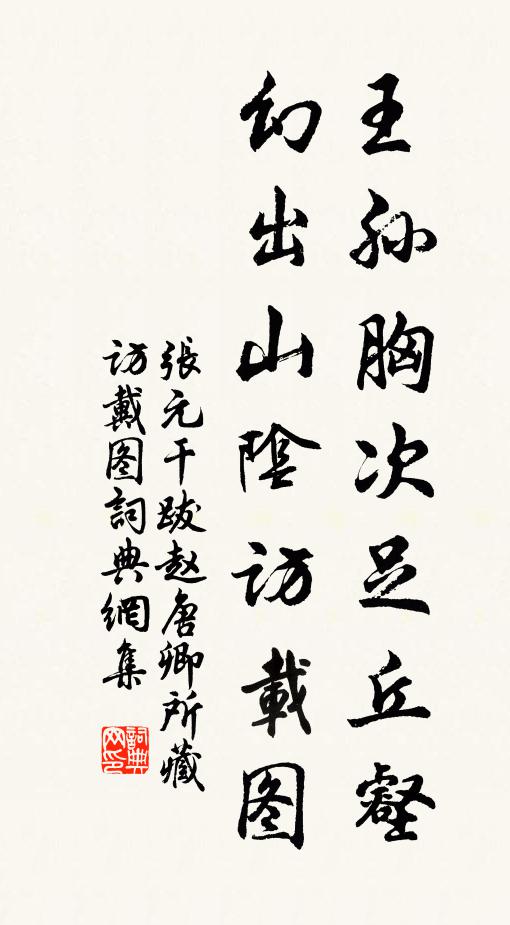 王孙胸次足丘壑
幻出山陰访載图
張元干跋赵唐卿所藏
访戴图詞典網集
詞典网印